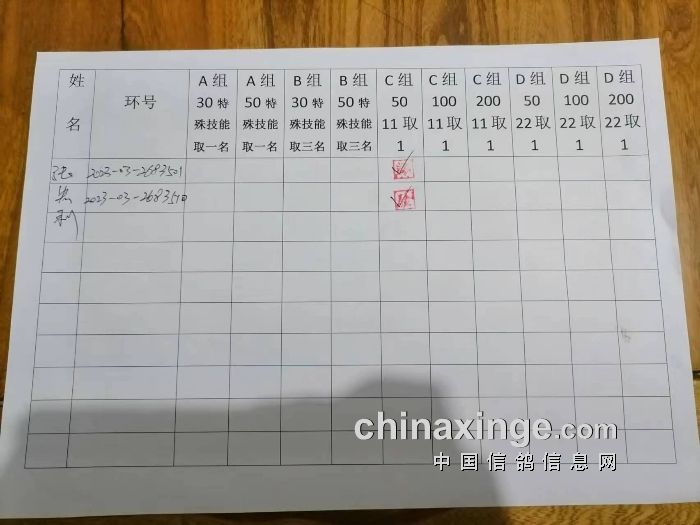 姓名 环号 A组30特殊技能取一名 A组50特殊技能取一名 B组30特殊技能取三名 B组50特殊技能取三名 C组5011取1 C组10011取1 C组20011取1 D组5022取1 D组10022取1 D组20022取1
2023-03-2683501
2023-03-2683510
chinaxinge.com
中国信鸽信息网